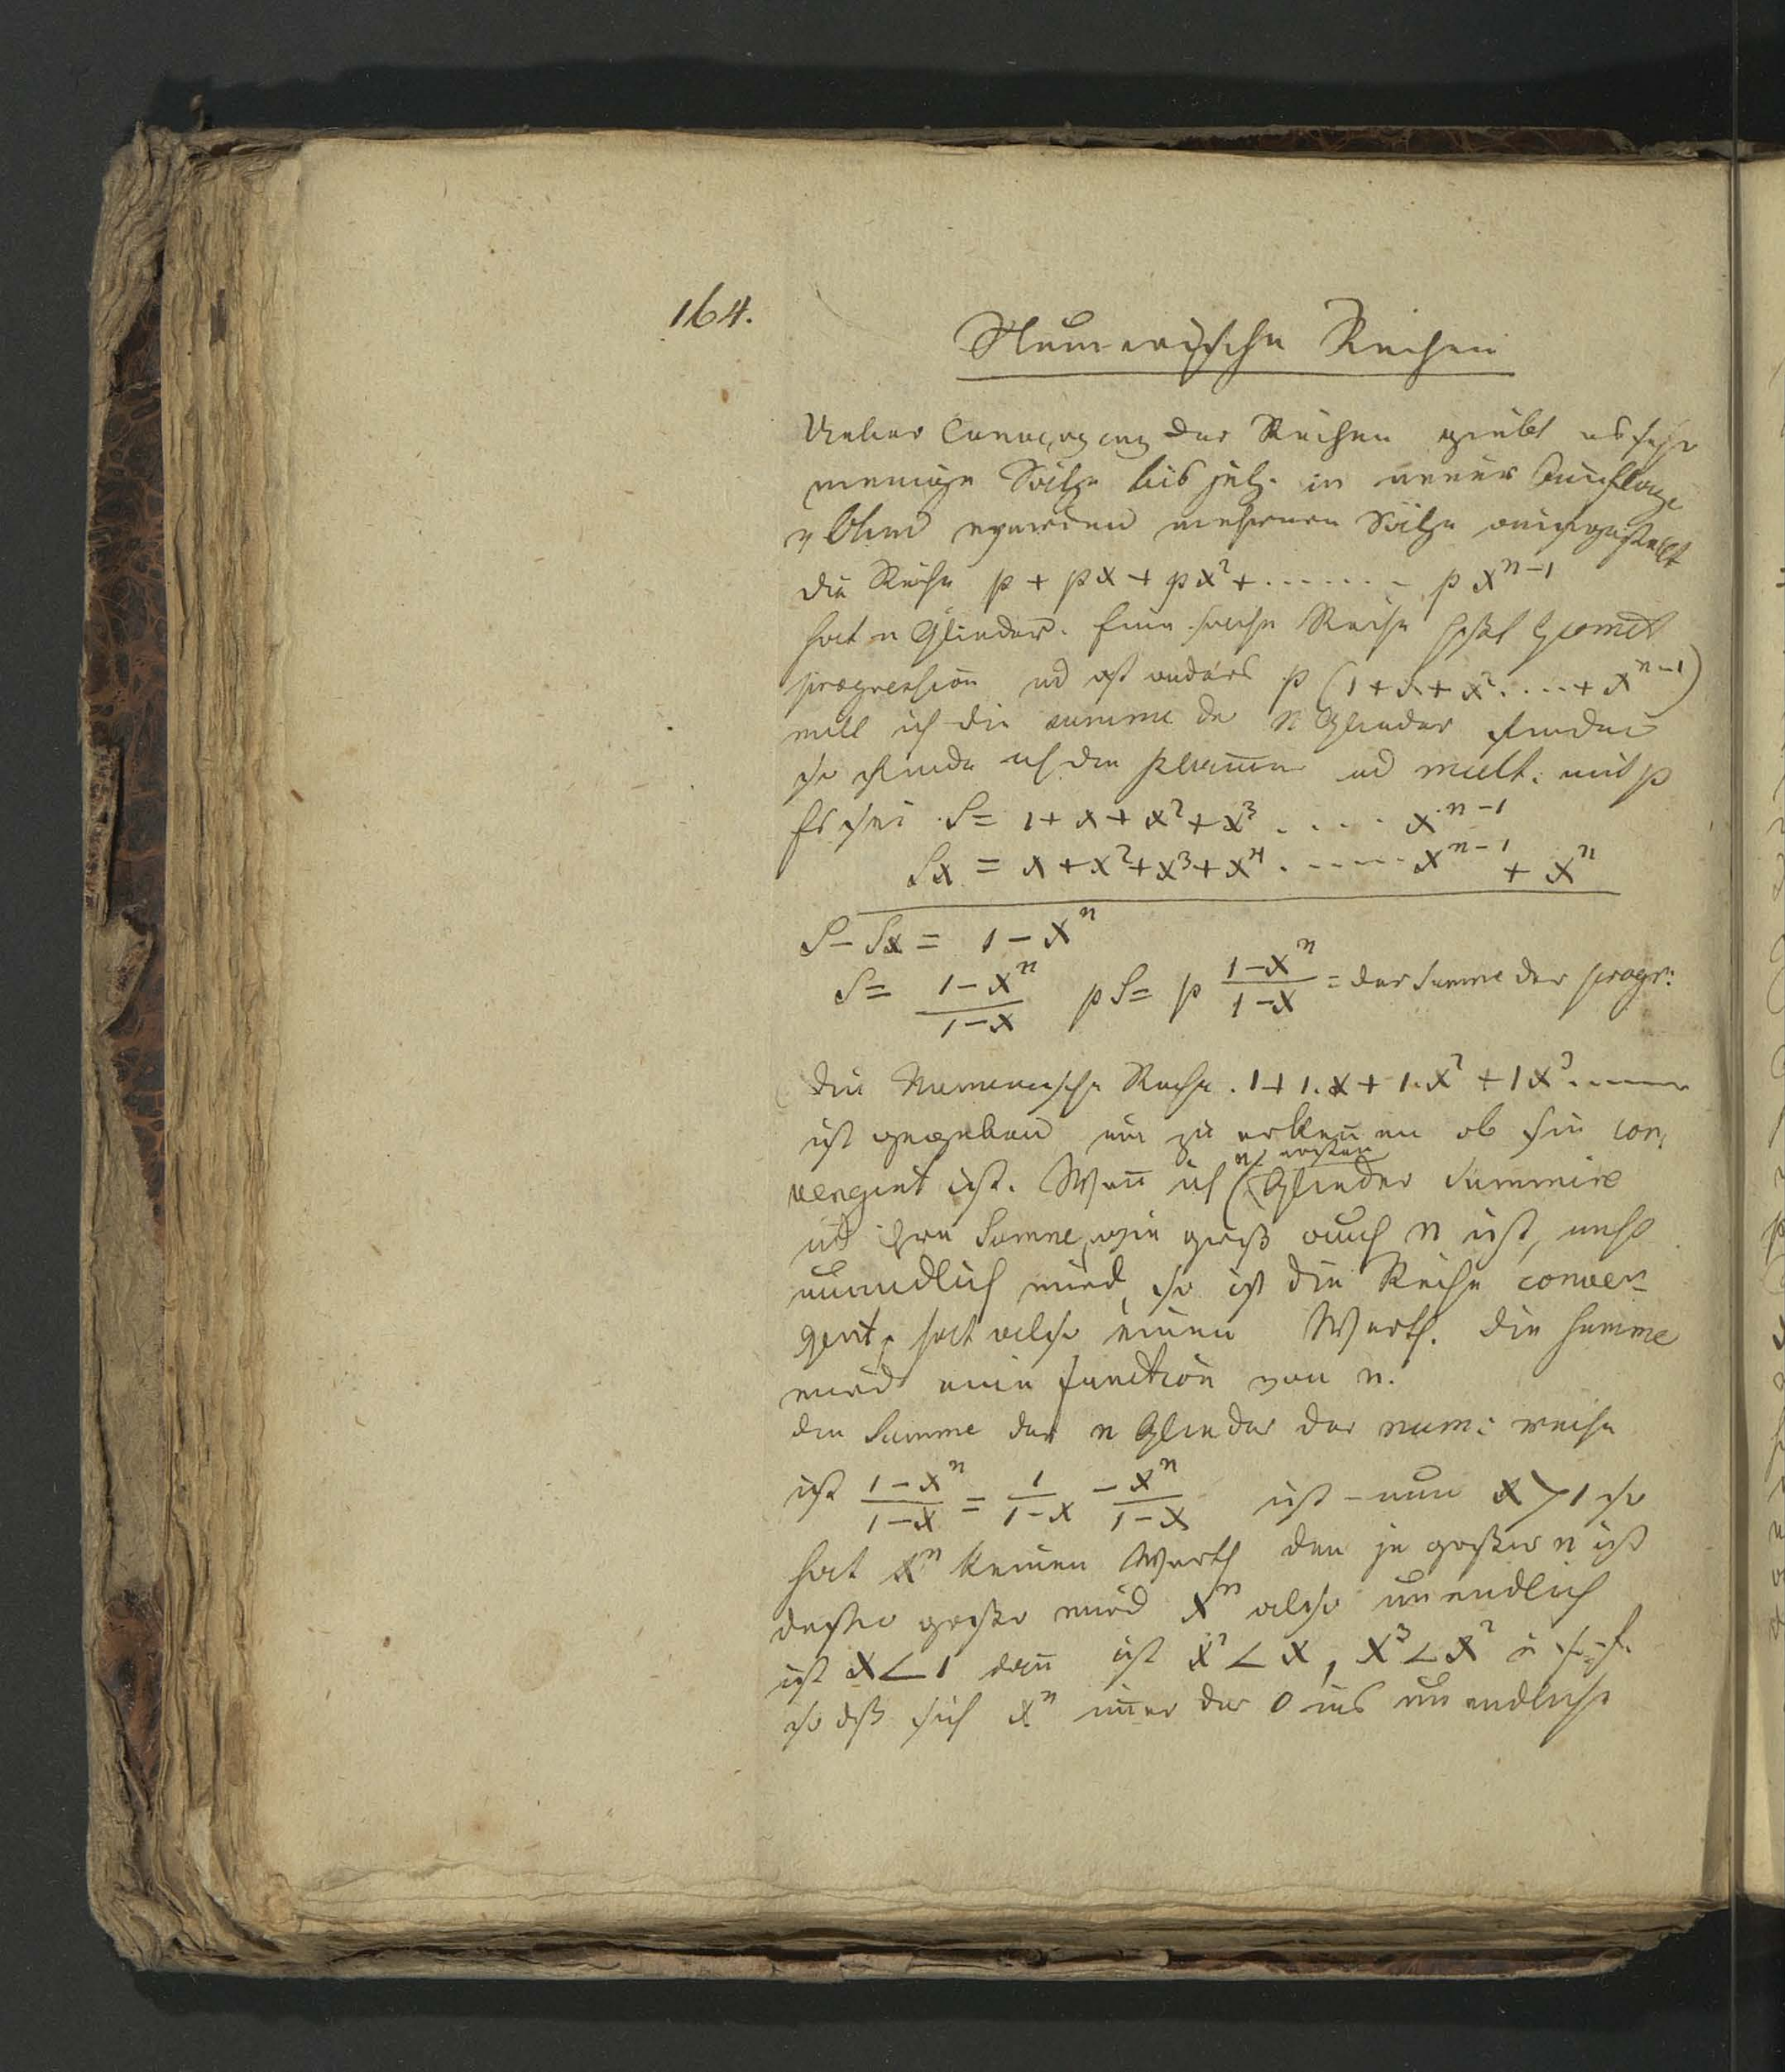 164.
Numerische Reihen
Ueber Convergenz der Reihen giebt es sehr
wenige Sätze bis jetz. in neuer Auflage
v Ohm werden mehrere Sätze aufgestellt
die Reihe p + px + px² + ....... p xⁿ⁻¹
hat n Glieder. Eine solche Reihe heßt Geomet
progression ud ist anders p (1 + x + x² .... + xⁿ⁻¹)
will ich die summe der n Glieder finden
so finde ich den ud mult. mit p
Es sei S = 1 + x + x² + x³ ..... xⁿ⁻¹
Sx = x + x² + x³ + x⁴ ...... xⁿ⁻¹ + xⁿ
S – Sx = 1 – xⁿ
S = (1 – xⁿ)/(1 – x) pS = p (1 – xⁿ)/(1 – x) = der Summe der progr:
Die Numerische Reihe . 1 + 1.x + 1.x² + 1x³ .....
ist gegeben um zu erkeñen ob sie con,
vergent ist. Weñ ich (n ersten Glieder Summire
ud ihre Summe, wie groß auch n ist, nicht
unendlich wird, so ist die Reihe conver=
gent, hat also einen Werth. Die Summe
wird eine function von n.
die Summe der n Glieder der num: reihe
ist (1 – xⁿ)/(1 – x) = 1/(1 – x) – xⁿ/(1 – x) ist nun x > 1 so
hat xⁿ keinen Werth den je großer n ist
desto großer wird xⁿ also unendlich
ist x < 1 dañ ist x² < x, x³ < x² u. s. f.
so dß sich xⁿ im̄er der 0 ins unendliche